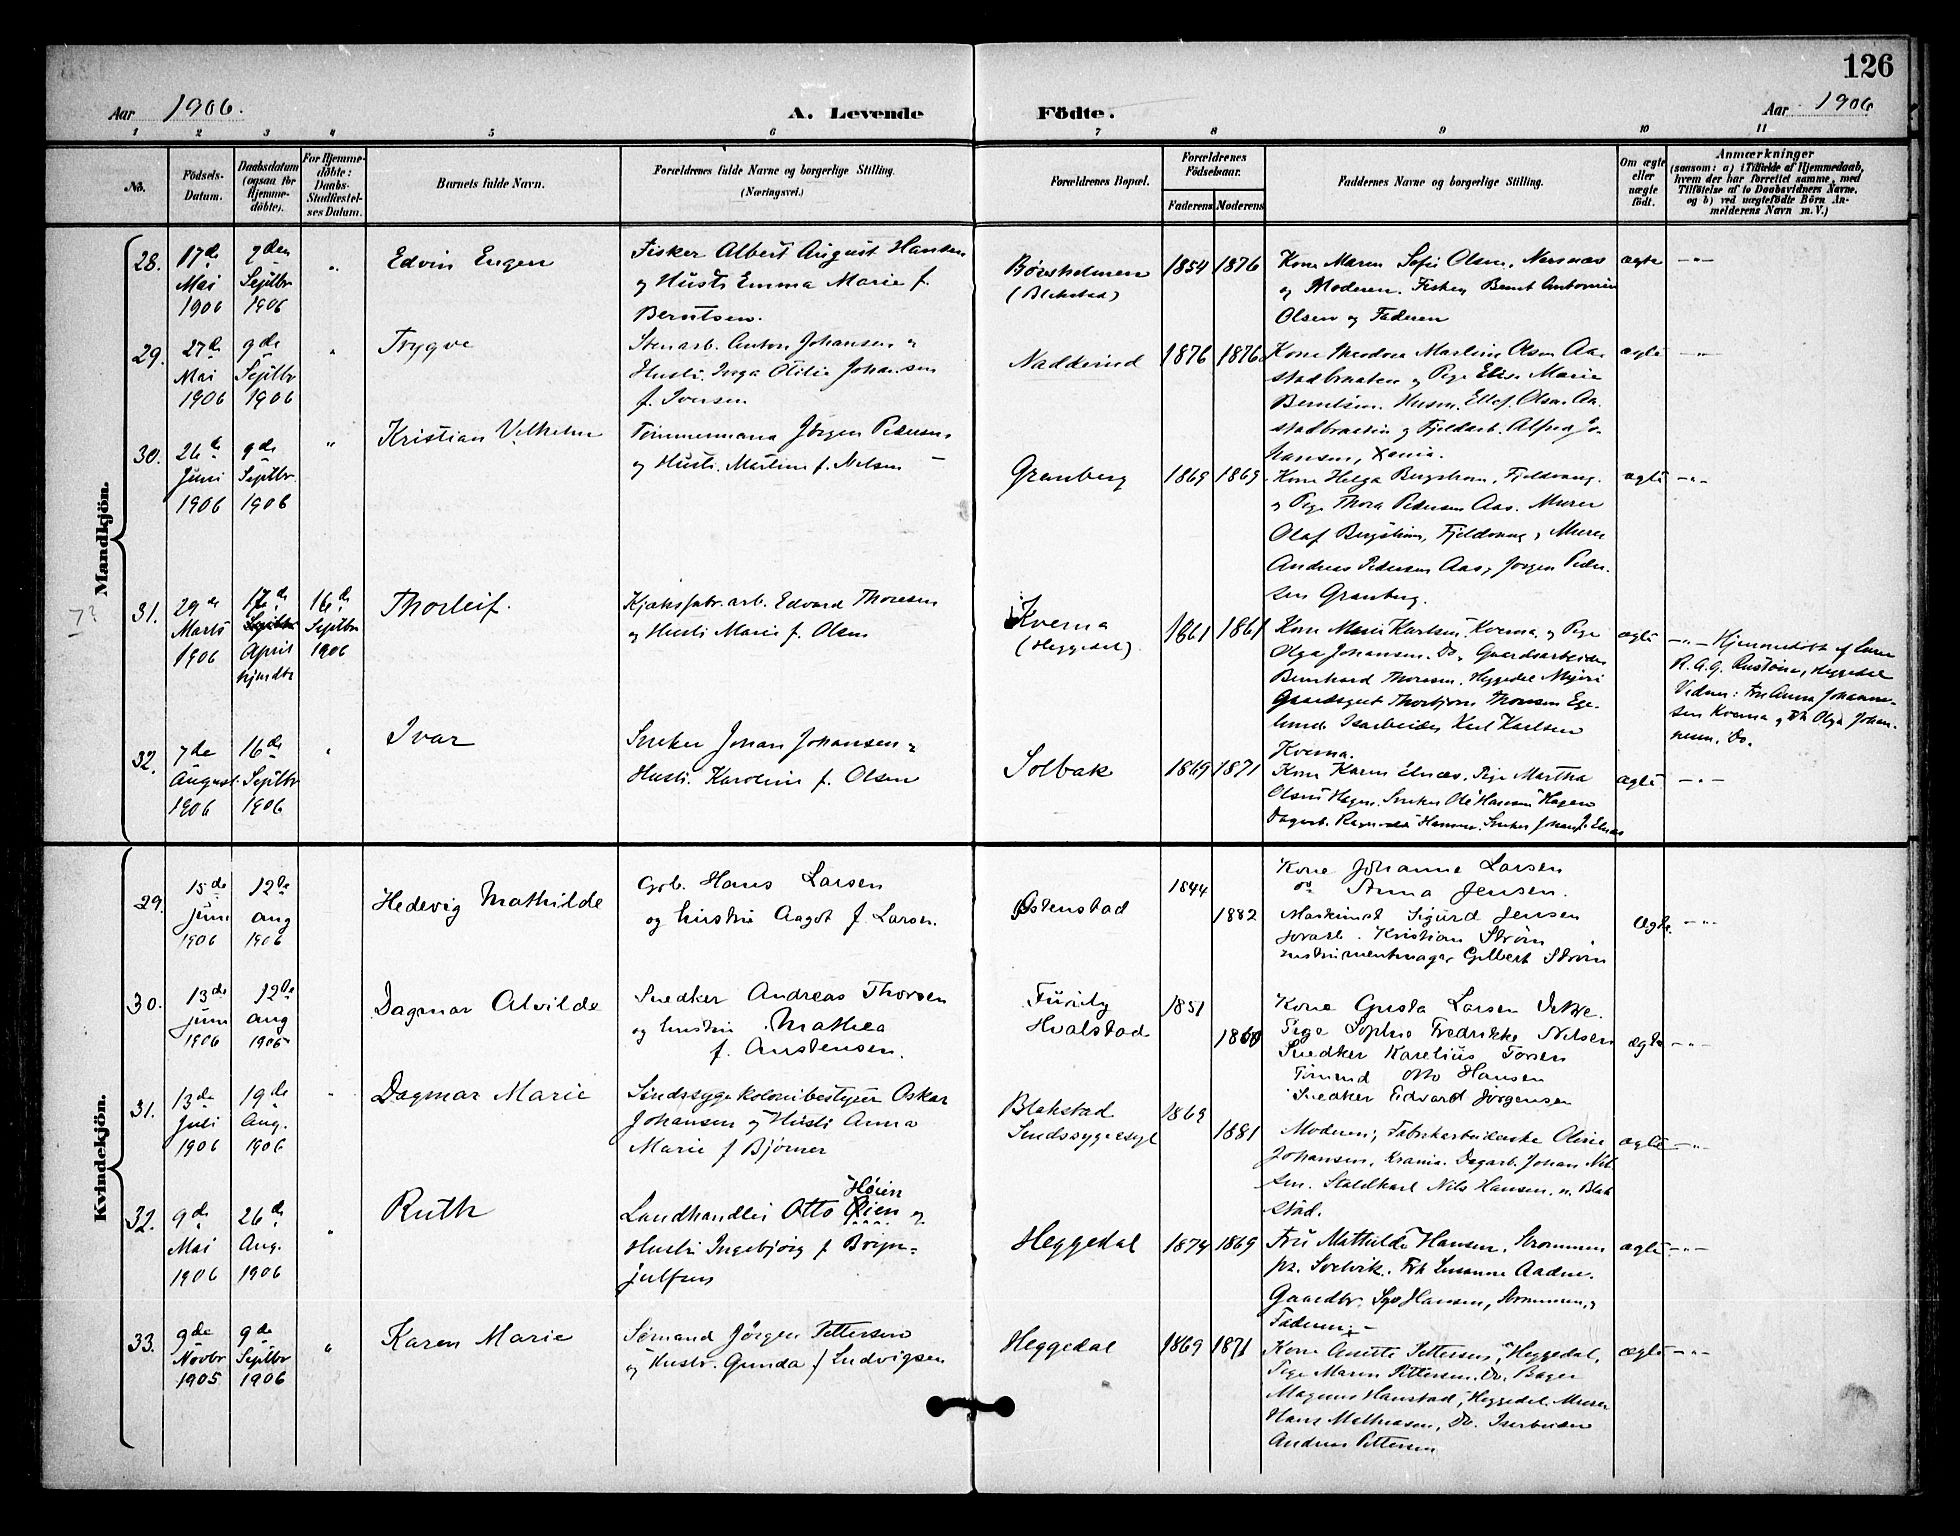 126
Aar 1906.
A. Levende Födte.
Aar 1906
1 2 3 4 5 6 7 8 9 10 11
No.
Födsels-
Datum.
Daabsdatum
(ogsaa for
Hjemme-
döbte).
For Hjemme-
döbte:
Daabs-
Stadfæstel-
ses Datum.
Barnets fulde Navn.
Forældrenes fulde Navne og borgerlige Stilling.
(Næringsvei.)
Forældrenes Bopæl.
Forældrenes
Födselsaar.
Faderens Moderens
Faddernes Navne og borgerlige Stilling.
Om ægte
eller
uægte
födt.
Anmærkninger
(saasom: a) i Tilfælde af Hjemmedaab,
hvem der har forrettet samme, med
Tilföielse af to Daabsvidners Navne,
og b) ved uægtefödte Börn An-
melderens Navn m. V.)
Mandkjön.
28.
17de
Mai
1906
9den
Septbr
1906
"
Edvin Eugen
Fisker Albert August Hansen
og Hustr. Emma Marie f.
Berntsen.
(Blakstad)
1854 1876
Kone Maren Sofie Olsen, Nersnæs
og Moderen. Fisker Bernt Antonius
Olsen og Faderen
ægte
-"-
29.
27de
Mai
1906
9de
Septbr
1906
"
Trygve
Stenarb. Anton Johansen og
Hustr. Inga Otilie Johansen
f. Iversen
Nadderud
1876 1876
Kone Theodora Martine Olsen Aa-
stadbraaten og Pige Elise Marie
Berntsen. Husm. Ellef Olsen Aa-
stadbraaten og Fjeldarb. Alfred Jo-
hansen, Xania.
ægte
-"-
30.
26de
Juni
1906
9de
Septbr.
1906
"
Kristian Vilhelm
Tömmermand Jörgen Pedersen
og Hustr. Martine f. Nelsen
Granberg
1869 1869
Kone Helga Bergstrøm, Fjeldvang.
og Pige Thora Pedersen Aas. Murer
Olaf Bergström, Fjeldvang, Murer
Andreas Pedersen Aas, Jörgen Peder-
sen Granberg.
ægte
-"-
7?
31.
29de
Marts
1906
17de
April
16de
Septbr
1906
Thorleif.
Edvard Thoresen
og Hustr. Marie f. Olsen
Kverna
(Heggedal)
1861 1861
Kone Marie Karlsen, Kverna, og Pige
Olga Johansen. Do, Gaardsarbeider
Bernhard Thoresen, Heggedal Meieri
Gaardsgut Thorbjörn Thoresen Ege-
lund. Isarbeider Karl Karlsen
Kverna.
ægte
-"- Hjemmedöbt af Lærer
R. A. G. Heggedal
Vidner: Fru Anna Johanne-
sen Kverna og Frk Olga Johan-
nesen. Do.
32.
7de
August
1906
16de
Septbr
1906
"
Ivar
Sneker Johan Johansen og
Hustr. Karoline f. Olsen
Solbak
1869 1871
Kone Karen Elnæs. Pige Martha
Olsen Hagen. Sneker Ole Hansen Hagen
Dagarb. Hansen. Sneker Johan J. Elnæs
ægte
-"-
Kvindekjön.
29.
15de
juni
1906
12te
aug
1906
Hedevig Mathilde
Gbr. Hans Larsen
og hustru Aagot f. Larsen.
Østenstad
1844
1882
Kone Johanne Larsen
do Anna Jensen.
Maskinist Sigurd Jensen
Kristian Ström
instrumentmager Gilbert Ström
Ægte.
-"-
30.
13de
juni
1906
12te
aug
1906
Dagmar Alvilde
Snedker Andreas Thorsen
og hustru Mathea
f. Austensen.
Furuly
Hvalstad
1851
1860
Kone Gusta Larsen
Pige Sophie Fredrikke Nilsen
Snedker Karelius Torsen
Tömmd Otto Hansen
Snedker Edvard Jörgensen
ægte
-"-
31.
13de
Juli
1906
19de
Aug.
1906
"
Dagmar Marie
Sindssygekolonibestyrer Oskar
Johansen og Hustr Anna
Marie f Bjørner
Blakstad
Sindssygeasyl
1869
1881
Moderen, Fabrikarbeiderske Oline
Johansen, Krania. Dagarb. Johan Nil-
sen. Staldkarl Nils Hansen, Blak
stad.
ægte
-"-
32.
9de
Mai
1906
26de
Aug.
1906
"
Ruth
Høien
Landhandler Otto Øien og
Hustr Ingebjörg f Bryn-
julfsen
Heggedal
1874 1869
Fru Mathilde Hansen, Strömmen
pr. Svelvik. Frk Susanne Aadne.
Gaardbr. Hansen, Strömmen, og
Faderen.
ægte
-"-
33.
9de
Novbr
1905
9de
Septbr
1906
"
Karen Marie
Sömand Jörgen Pettersen
og Hustr. Gunda f Ludvigsen
Heggedal
1869 1871
Kone Anette Pettersen, Heggedal,
Pige Maren Pettersen. Do. Bager
Magnus Hanstad, Heggedal. Murer
Hans Mathiasen, Do. Isarbeider
Andreas Pettersen
ægte
-"-